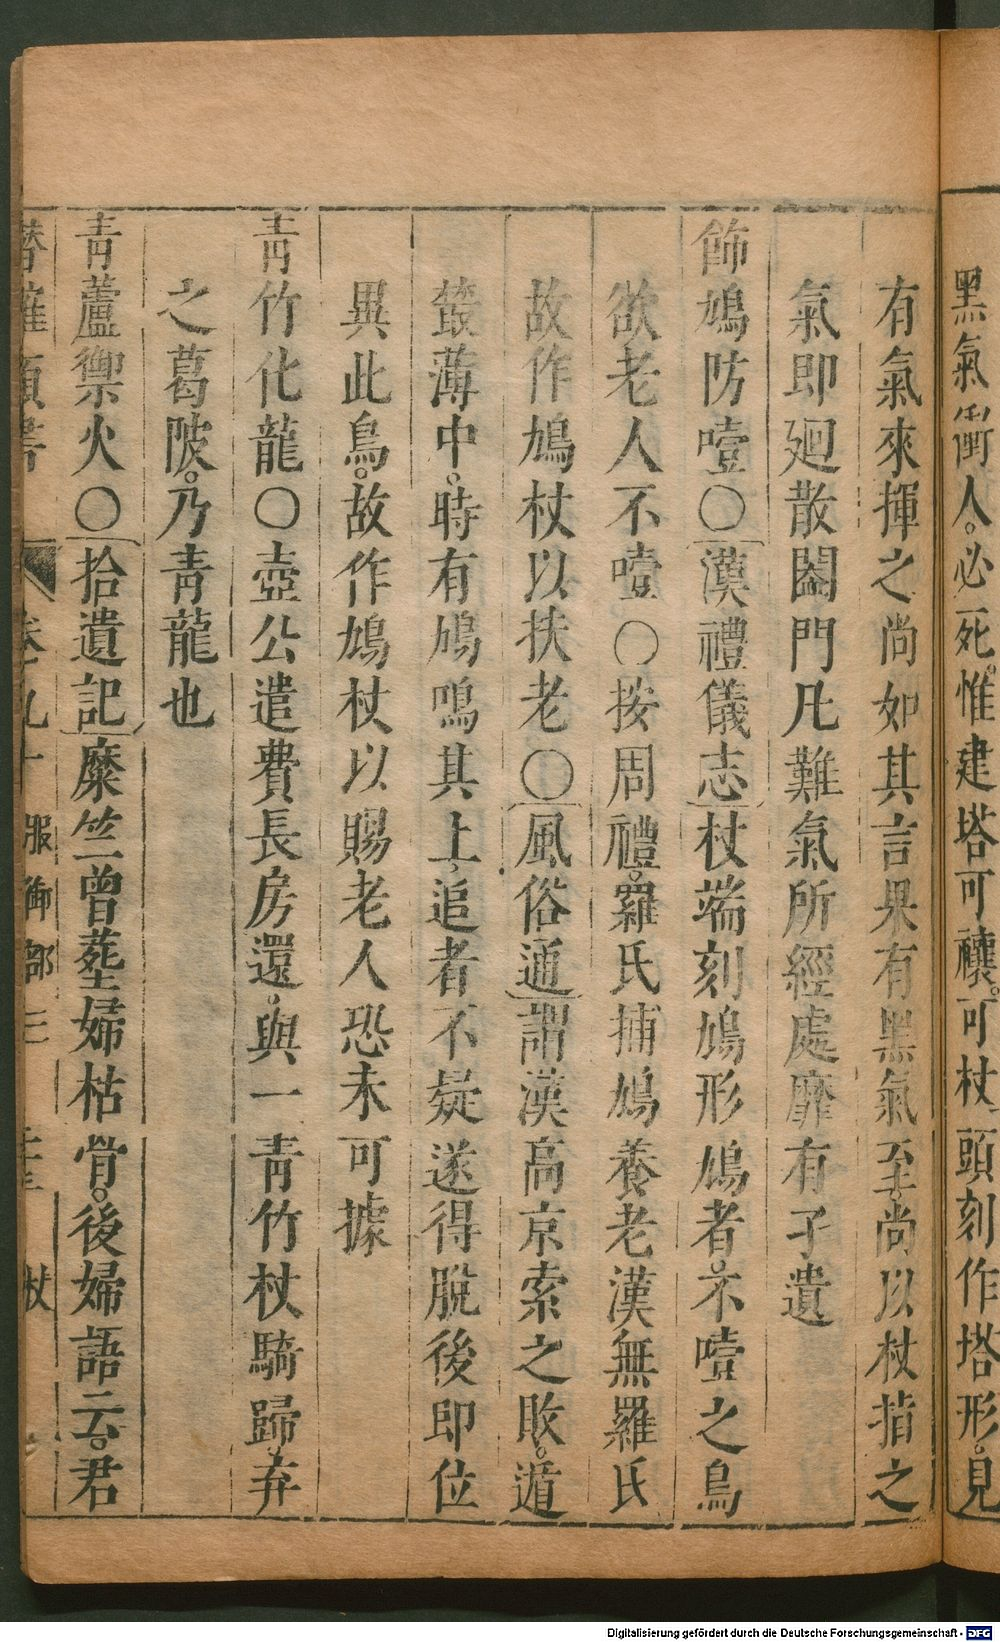 黑氣衝人。必死。惟建塔可禳。可杖頭刻作塔形。見
有氣來揮之尚如其言果有黑氣至。尚以杖指之
氣即廻散闔門凡難氣所經處靡有孑遺
飾鳩防噎○漢禮儀志杖端刻鳩形鳩者。不噎之鳥
欲老人不噎○按周禮。羅氏捕鳩養老漢無羅氏
故作鳩杖以扶老○風俗通謂漢高京索之敗。遁
藂薄中。時有鳩鳴其上。追者不疑遂得脫後即位
異此鳥。故作鳩杖以賜老人恐未可據
青竹化龍○壺公遣費長房還。與一青竹杖騎歸。弃
之葛陂。乃青龍也
青蘆禦火○拾遺記糜竺曾塟婦枯骨。後婦語云。君
潛確類書 卷九十 服御部三 杖
Digitalisierung gefördert durch die Deutsche Forschungsgemeinschaft - DFG